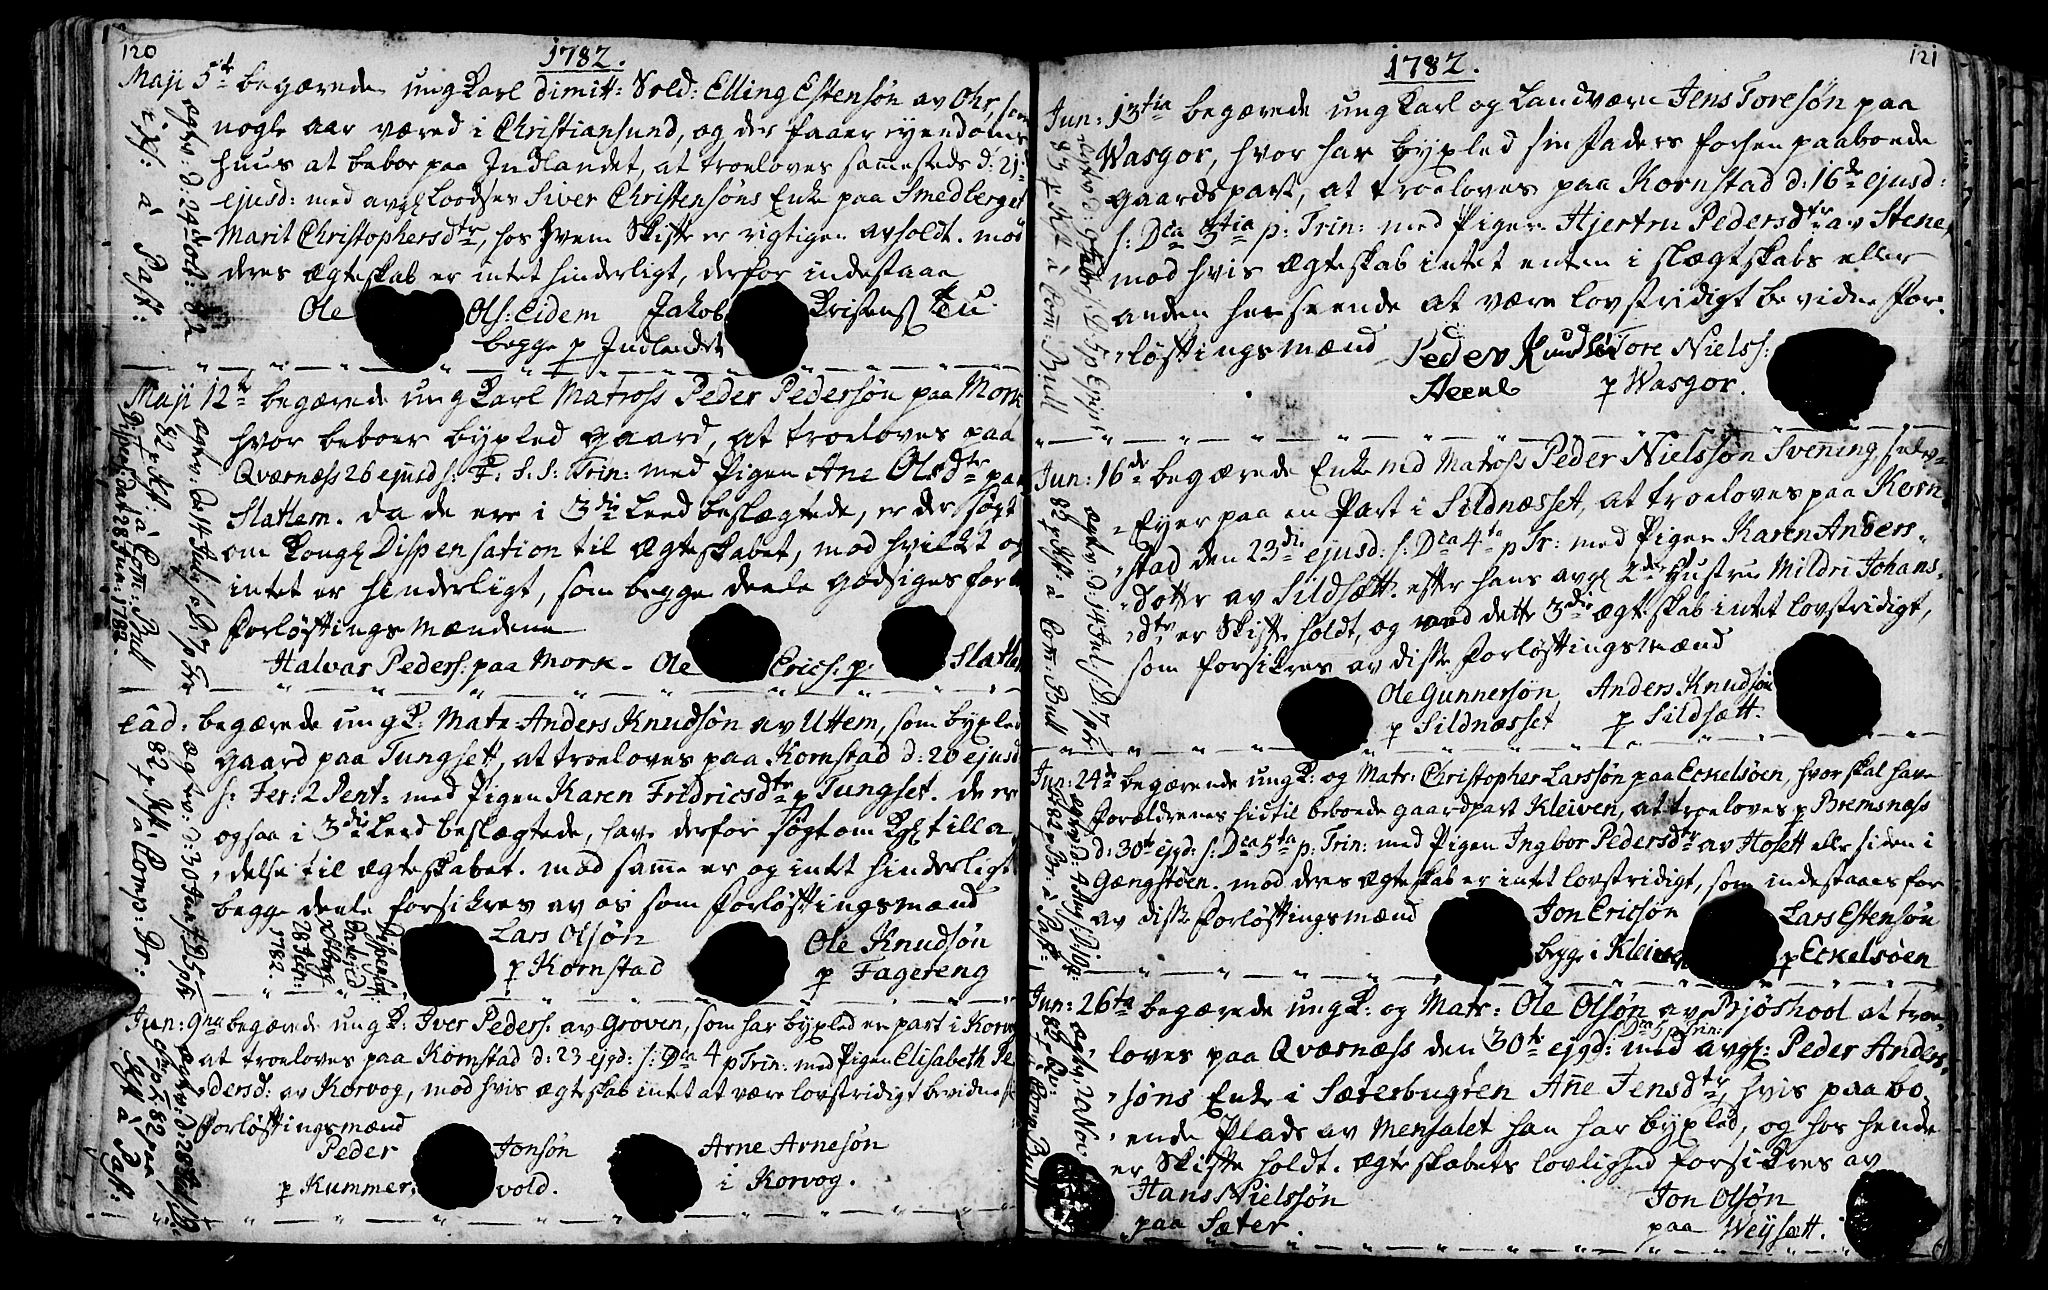 120
1782.
Maji 5te begærede ung Karl dimitt: Sold: Elling Estensøn av Ohr, som
nogle aar været i Christiansund, og der faaer eyendoms
huus at beboe paa Indlandet, at troeloves sammesteds d: 21
ejusd: med avgl Loodser Siver Christensøns Enke paa Smedberget
Marit Christophersdtr, hos hvem Skifte er rigtigen avholdt. mod
deres ægteskab er intet hinderligt, derfor indestaae
Ole Ols: Eidem Jakob Kristens
begge p Indlandet
Maji 12te begærede ung Karl Matros Peder Pedersøn paa Mork
hvor beboer bypled gaard, at troeloves paa
Qværness 26 ejusd: F. S. S: Trin: med Pigen Ane Olsdtr paa
Slatlem. da de ere i 3die Leed beslægtede, er der søgt
om Kongl Dispensation til ægteskabet, mod hvilket og
intet er hinderligt, som begge deele godsiges for av
Forløftingsmændene
Halvar Peders: paa Mork - Ole Erics: p: Slatlem
eâd: begærede ung K: Matr Anders Knudsøn av Uttem, som bypled
gaard paa Tungsett, at troeloves paa Kornstad d: 20 ejusd
s: Fer: 2 Pent: med Pigen Karen Fridricsdtr p Tungset. de er
ogsaa i 3die Leed beslægtede, have derfor søgt om Kgl tilla,
,delse til ægteskabet. mod samme er og intet hinderligt
begge deele forsikres av os som Forløftingsmænd
Lars Olsøn Ole Knudsøn
p Kornstad p Fagereng
Jun: 9na begærede ung K: Iver Peders: av Groven, som har bypled en part i Korvog
at troeloves paa Kornstad d: 23 ejgd: s: Dca 4 p Trin: med Pigen Elisabeth Pe
,dersd: av Korvog, mod hvis ægteskab intet at være lovstridigt bevidne
Forløftingsmænd
Peder Jonsøn Arne Arnesøn
p Kummer, vold. i Korvog.
121
1782.
Jun: 13tia begærede ung Karl og Landværn Jens Toresøn paa
Wasgor, hvor har bypled sin Faders forhen paaboede
gaardspart, at troeloves paa Kornstad d: 16de ejusd:
s: Dca 3tia p: Trin: med Pigen Hjertru Pedersdtr av Stene,
mod hvis ægteskab intet enten i slægtskabs eller
anden henseende at være lovstridigt bevidne For,
,løftingsmænd Peder Knudsen Tore Niels:
p Wasgor.
Jun: 16de begærede Enkemd Matros Peder Nielssøn Svening, selv,
,Eyer paa en Part i Sildnæsset, at troeloves paa Korn,
,stad den 23die ejusd: s: Dca 4ta p Tr: med Pigen Karen Anders,
,dotter av Sildsætt. efter hans avgl 2de Hustru Mildri Johans,
,dtr, er Skifte holdt, og mod dette 3die ægteskab intet lovstridigt,
som forsikres av disse Forløftingsmænd
Ole Gunnersøn Anders Knudsøn
p Sildnæsset p Sildsætt:
Jun: 24de begærende ung K: og Matr: Christopher Larssøn paa Eckelsøen, hvor skal have
Forældrenes hidtil beboede gaardpart Kleiven, at troeloves p Bremsnæss
d: 30te ejgd: s: Dca 5ta p: Trin: med Pigen Ingbor Pedersdtr av Hosett eller siden i
Gængstøen. mod deres ægteskab er intet lovstridigt, som indestaaes for
av disse Forløftingsmænd Jon Ericsøn Lars Estensøn
byge i Kleiven p Eckelsøen
Jun: 26ta begærede ung K: og Matr: Ole Olsøn av Bjøshool at troe,
s: Dca 5 p Trin:
,loves paa Qværness den 30te ejgd: med avgl: Peder Anders,
,søns Enke i Sæterbugten Anne Jensdtr, hvis paa bo,
,ende Plads av Mensalet han har bypled, og hos hende
er Skifte holdt. ægteskabets lovlighed forsikres av
Hans Nielssøn Jon Olsøn
paa Sæter. paa Weysætt.